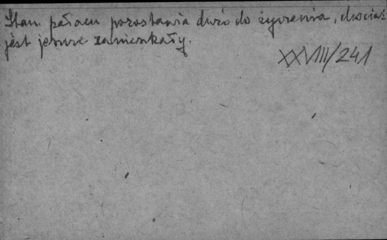 Stan pałacu pozostawia dużo do życzenia, chociaż
jest jeszcze zamieszkały.
XXVIII/241